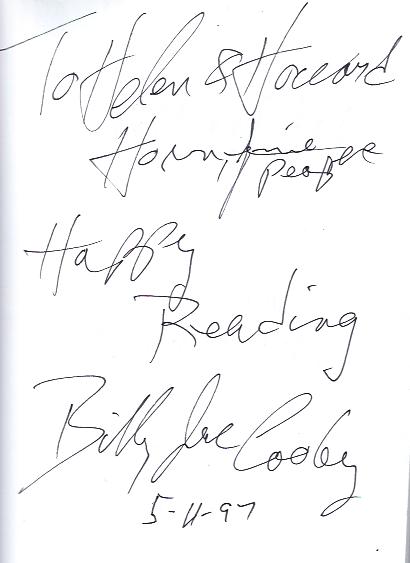 To Helen & Howard
Horn, fine people
Happy
Reading
Billy Joe Cooley
5-11-97